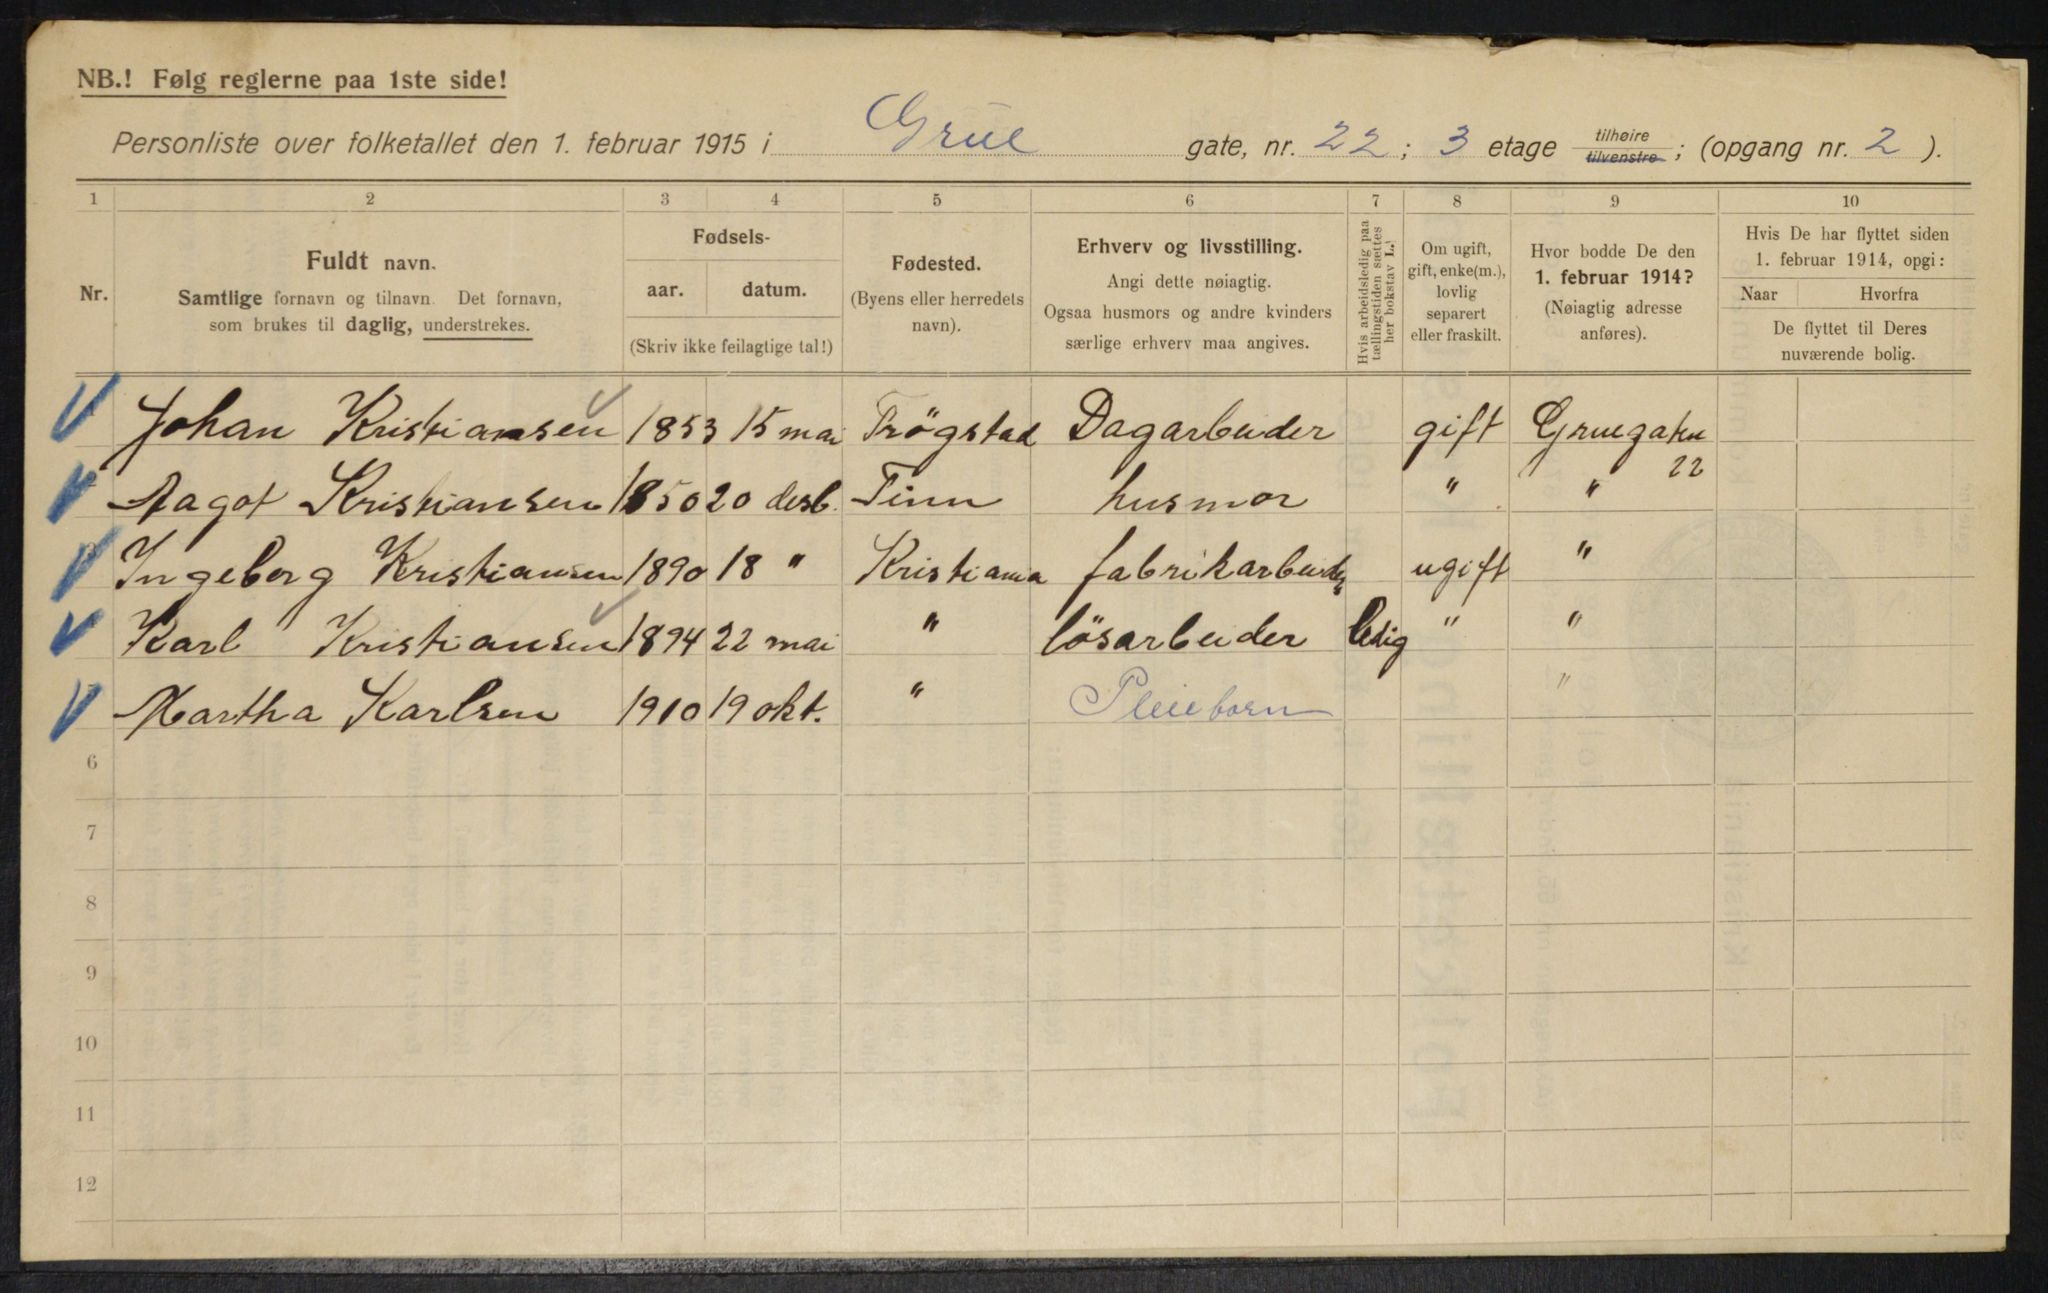 NB.! Følg reglerne paa 1ste side!
Personliste over folketallet den 1. februar 1915 i Grüe gate, nr. 22; 3 etage tilhøire tilvenstre; (opgang nr. 2).
1 2 3 4 5 6 7 8 9 10
Nr.
Fuldt navn.
Samtlige fornavn og tilnavn. Det fornavn,
som brukes til daglig, understrekes.
Fødsels-
aar. datum.
(Skriv ikke feilagtige tal!)
Fødested.
(Byens eller herredets
navn).
Erhverv og livsstilling.
Angi dette nøiagtig.
Ogsaa husmors og andre kvinders
særlige erhverv maa angives.
Hvis arbeidsledig paa
tællingstiden sættes
her bokstav L.
Om ugift,
gift, enke(m.),
lovlig
separert
eller fraskilt.
Hvor bodde De den
1. februar 1914?
(Nøiagtig adresse
anføres).
Hvis De har flyttet siden
1. februar 1914, opgi:
Naar Hvorfra
De flyttet til Deres
nuværende bolig.
Johan Kristiansen 1853 15 mai Trögstad Dagarbeider gift Gruegaten 22
Aagot Kristiansen 1850 20 desb. Tinn husmor " "
Ingeborg Kristiansen 1890 18 " Kristiania fabrikarbeider ugift "
Karl Kristiansen 1894 22 mai " lösarbeider ledig " "
Martha Karlsen 1910 19 okt. " Pleiebarn "
6
7
8
9
10
11
12